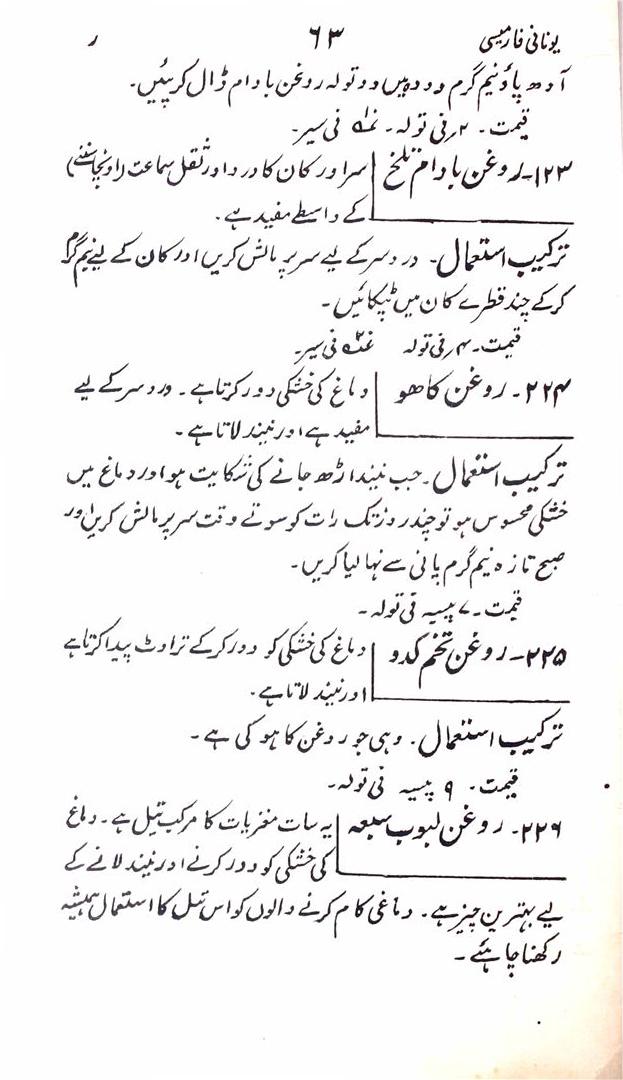 یونانی فارمیسی ۶۳ ر
آدھ پاؤ نیم گرم دودہ میں دو تولہ روغن بادام ڈال کر پئیں۔
قیمت۔ ۲؍ فی تولہ۔ فی سیر۔
۱۲۳۔ روغن بادام تلخ سر اور کان کا درد اور ثقل سماعت (اونچا سننے)
کے واسطے مفید ہے۔
ترکیب استعمال۔ درد سر کے لیے سر پر مالش کریں اور کان کے لیے نیم گرم
کر کے چند قطرے کان میں ٹپکائیں۔
قیمت۔ ۴؍ فی تولہ فی سیر۔
۲۲۴۔ روغن کاھو دماغ کی خشکی دور کرتا ہے۔ درد سر کے لیے
مفید ہے اور نیند لاتا ہے۔
ترکیب استعمال۔ جب نیند اڑھ جانے کی شکایت ہو اور دماغ میں
خشکی محسوس ہو تو چند روز تک رات کو سوتے وقت سر پر مالش کریں اور
صبح تازہ نیم گرم پانی سے نہا لیا کریں۔
قیمت۔ ۷ پیسہ فی تولہ۔
۲۲۵۔ روغن تخم کدو دماغ کی خشکی کو دور کر کے تراوٹ پیدا کرتا ہے
اور نیند لاتا ہے۔
ترکیب استعمال۔ وہی جو روغن کاہو کی ہے۔
قیمت۔ ۹ پیسہ فی تولہ۔
۲۲۶۔ روغن لبوب سبعہ یہ سات مغزیات کا مرکب تیل ہے۔ دماغ
کی خشکی کو دور کرنے اور نیند لانے کے
لیے بہترین چیز ہے۔ دماغی کام کرنے والوں کو اس تیل کا استعمال ہمیشہ
رکھنا چاہئے۔